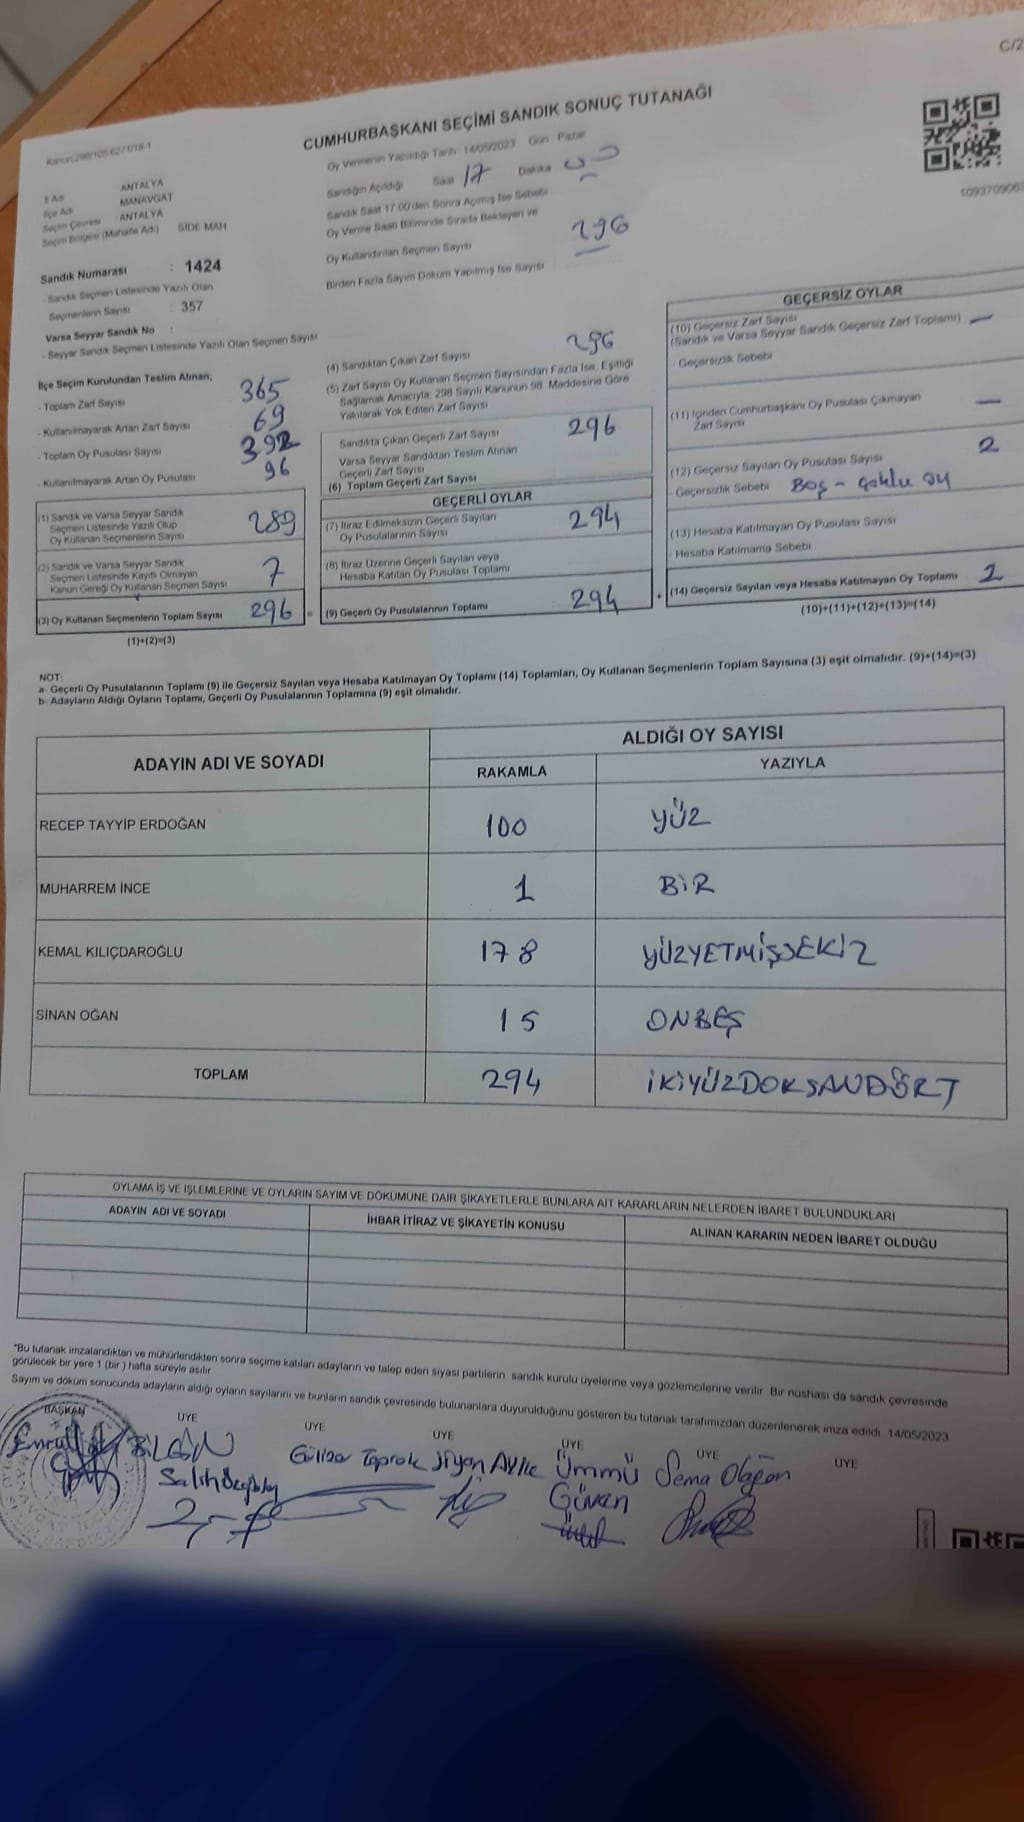 C/2
CUMHURBAŞKANI SEÇİMİ SANDIK SONUÇ TUTANAĞI
Oy Vermenin Yapıldığı Tarih 14/05/2023 Gün Pazar
Sandığın Açıldığı Saat 17 Dakika
Sandık Saat 17:00'den Sonra Açılmış İse Sebebi
Oy Verme Saati Bitiminde Sırada Bekleyen ve
Oy Kullandırılan Seçmen Sayısı 296
Birden Fazla Sayım Döküm Yapılmış İse Sayısı
İl Adı ANTALYA
İlçe Adı MANAVGAT
Seçim Çevresi : ANTALYA
Seçim Bölgesi (Mahalle Adı) SİDE MAH
Sandık Numarası : 1424
- Sandık Seçmen Listesinde Yazılı Olan
Seçmenlerin Sayısı : 357
Varsa Seyyar Sandık No :
- Seyyar Sandık Seçmen Listesinde Yazılı Olan Seçmen Sayısı
İlçe Seçim Kurulundan Teslim Alınan;
- Toplam Zarf Sayısı 365
- Kullanılmayarak Artan Zarf Sayısı 69
- Toplam Oy Pusulası Sayısı 392
- Kullanılmayarak Artan Oy Pusulası 96
(1) Sandık ve Varsa Seyyar Sandık
Seçmen Listesinde Yazılı Olup
Oy Kullanan Seçmenlerin Sayısı 289
(2) Sandık ve Varsa Seyyar Sandık
Seçmen Listesinde Kayıtlı Olmayan
Kanun Gereği Oy Kullanan Seçmen Sayısı 7
(3) Oy Kullanan Seçmenlerin Toplam Sayısı 296 =
(1)+(2)=(3)
(4) Sandıktan Çıkan Zarf Sayısı 296
(5) Zarf Sayısı Oy Kullanan Seçmen Sayısından Fazla İse, Eşitliği
Sağlamak Amacıyla, 298 Sayılı Kanunun 98. Maddesine Göre
Yakılarak Yok Edilen Zarf Sayısı
Sandıkta Çıkan Geçerli Zarf Sayısı 296
Varsa Seyyar Sandıktan Teslim Alınan
Geçerli Zarf Sayısı
(6) Toplam Geçerli Zarf Sayısı
GEÇERLİ OYLAR
(7) İtiraz Edilmeksizin Geçerli Sayılan
Oy Pusulalarının Sayısı 294
(8) İtiraz Üzerine Geçerli Sayılan veya
Hesaba Katılan Oy Pusulası Toplamı
(9) Geçerli Oy Pusulalarının Toplamı 294 +
GEÇERSİZ OYLAR
(10) Geçersiz Zarf Sayısı
(Sandık ve Varsa Seyyar Sandık Geçersiz Zarf Toplamı) —
- Geçersizlik Sebebi
(11) İçinden Cumhurbaşkanı Oy Pusulası Çıkmayan
Zarf Sayısı —
(12) Geçersiz Sayılan Oy Pusulası Sayısı 2
- Geçersizlik Sebebi Boş - çoklu oy
(13) Hesaba Katılmayan Oy Pusulası Sayısı
- Hesaba Katılmama Sebebi
(14) Geçersiz Sayılan veya Hesaba Katılmayan Oy Toplamı 2
(10)+(11)+(12)+(13)=(14)
NOT:
a- Geçerli Oy Pusulalarının Toplamı (9) ile Geçersiz Sayılan veya Hesaba Katılmayan Oy Toplamı (14) Toplamları, Oy Kullanan Seçmenlerin Toplam Sayısına (3) eşit olmalıdır. (9)+(14)=(3)
b- Adayların Aldığı Oyların Toplamı, Geçerli Oy Pusulalarının Toplamına (9) eşit olmalıdır.
ADAYIN ADI VE SOYADI
ALDIĞI OY SAYISI
RAKAMLA YAZIYLA
RECEP TAYYİP ERDOĞAN 100 YÜZ
MUHARREM İNCE 1 BİR
KEMAL KILIÇDAROĞLU 178 YÜZYETMİŞSEKİZ
SİNAN OĞAN 15 ONBEŞ
TOPLAM 294 İKİYÜZDOKSANDÖRT
OYLAMA İŞ VE İŞLEMLERİNE VE OYLARIN SAYIM VE DÖKÜMÜNE DAİR ŞİKAYETLERLE BUNLARA AİT KARARLARIN NELERDEN İBARET BULUNDUKLARI
ADAYIN ADI VE SOYADI İHBAR İTİRAZ VE ŞİKAYETİN KONUSU ALINAN KARARIN NEDEN İBARET OLDUĞU
*Bu tutanak imzalandıktan ve mühürlendikten sonra seçime katılan adayların ve talep eden siyasi partilerin sandık kurulu üyelerine veya gözlemcilerine verilir. Bir nüshası da sandık çevresinde
görülecek bir yere 1 (bir ) hafta süreyle asılır
Sayım ve döküm sonucunda adayların aldığı oyların sayılarını ve bunların sandık çevresinde bulunanlara duyurulduğunu gösteren bu tutanak tarafımızdan düzenlenerek imza edildi. 14/05/2023
BAŞKAN ÜYE ÜYE ÜYE ÜYE ÜYE ÜYE
BİLGİN
Salih
Toprak
Ümmü
Güven
Sema